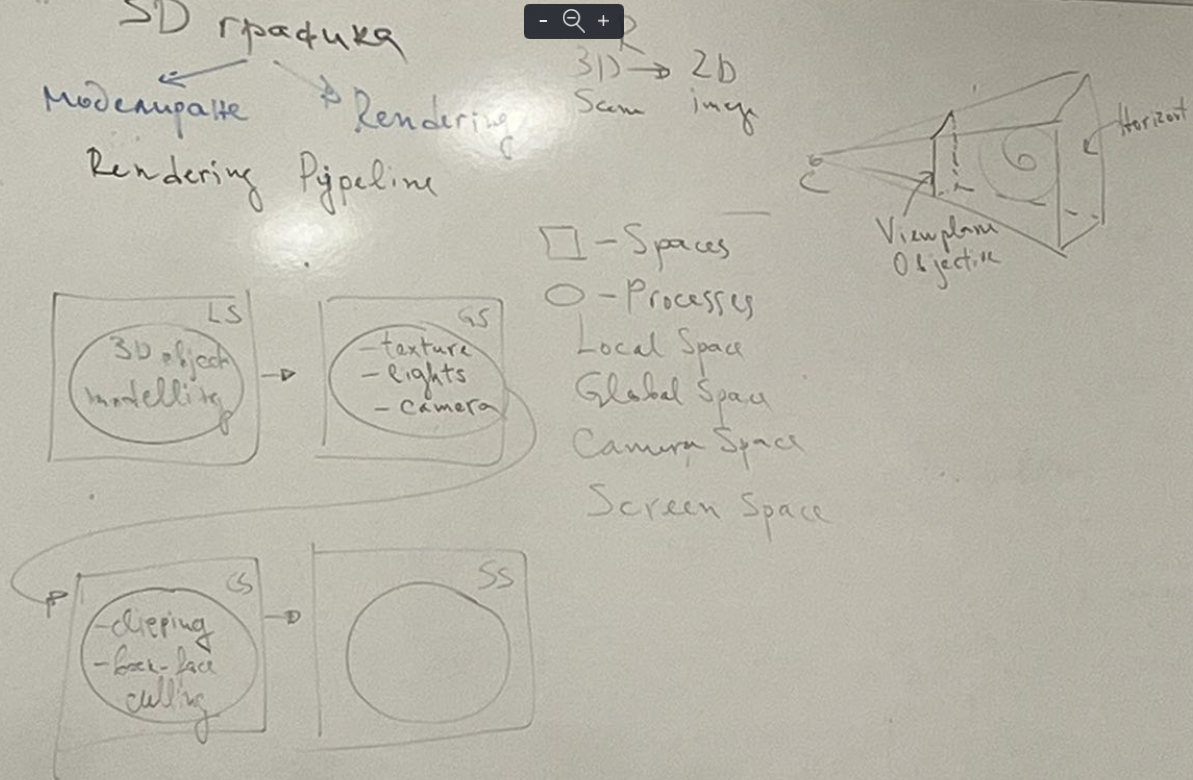 3D графика
Моделиране
Rendering
R
3D → 2D
Scene image
Rendering Pypeline
C
Horizont
Viewplane
Objective
□ - Spaces
○ - Processes
Local Space
Global Space
Camera Space
Screen Space
LS
3D object
modelling
GS
- texture
- lights
- camera
CS
- clipping
- back-face
culling
SS